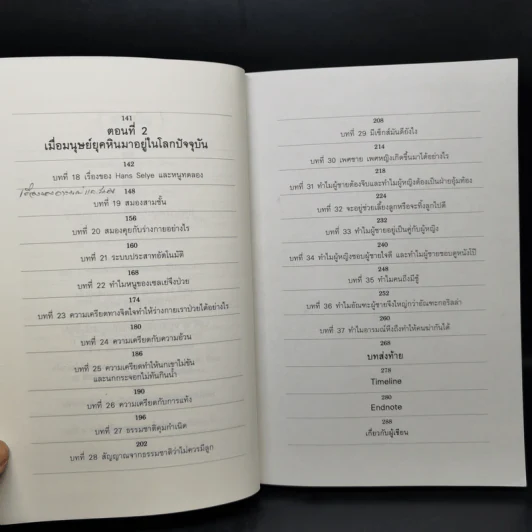 141
ตอนที่ 2
เมื่อมนุษย์ยุคหินมาอยู่ในโลกปัจจุบัน
142
บทที่ 18 เรื่องของ Hans Selye และหนูทดลอง
148
บทที่ 19 สมองสามชั้น
156
บทที่ 20 สมองคุยกับร่างกายอย่างไร
160
บทที่ 21 ระบบประสาทอัตโนมัติ
168
บทที่ 22 ทำไมหนูของเซลเย่จึงป่วย
174
บทที่ 23 ความเครียดทางจิตใจทำให้ร่างกายเราป่วยได้อย่างไร
180
บทที่ 24 ความเครียดกับความอ้วน
186
บทที่ 25 ความเครียดทำให้นกเขาไม่ขัน
และนกกระจอกไม่ทันกินน้ำ
190
บทที่ 26 ความเครียดกับการแท้ง
196
บทที่ 27 ธรรมชาติคุมกำเนิด
202
บทที่ 28 สัญญาณจากธรรมชาติว่าไม่ควรมีลูก
208
บทที่ 29 มีเซ็กส์มันดียังไง
214
บทที่ 30 เพศชาย เพศหญิงเกิดขึ้นมาได้อย่างไร
218
บทที่ 31 ทำไมผู้ชายต้องจีบและทำไมผู้หญิงต้องเป็นฝ่ายอุ้มท้อง
224
บทที่ 32 จะอยู่ช่วยเลี้ยงลูกหรือจะทิ้งลูกไปดี
232
บทที่ 33 ทำไมผู้ชายอยู่เป็นคู่กับผู้หญิง
240
บทที่ 34 ทำไมผู้หญิงชอบผู้ชายใจดี และทำไมผู้ชายชอบดูหนังโป๊
248
บทที่ 35 ทำไมคนถึงมีชู้
252
บทที่ 36 ทำไมอัณฑะผู้ชายจึงใหญ่กว่าอัณฑะกอริลล่า
260
บทที่ 37 ทำไมอารมณ์หึงถึงทำให้คนฆ่ากันได้
268
บทส่งท้าย
278
Timeline
280
Endnote
288
เกี่ยวกับผู้เขียน